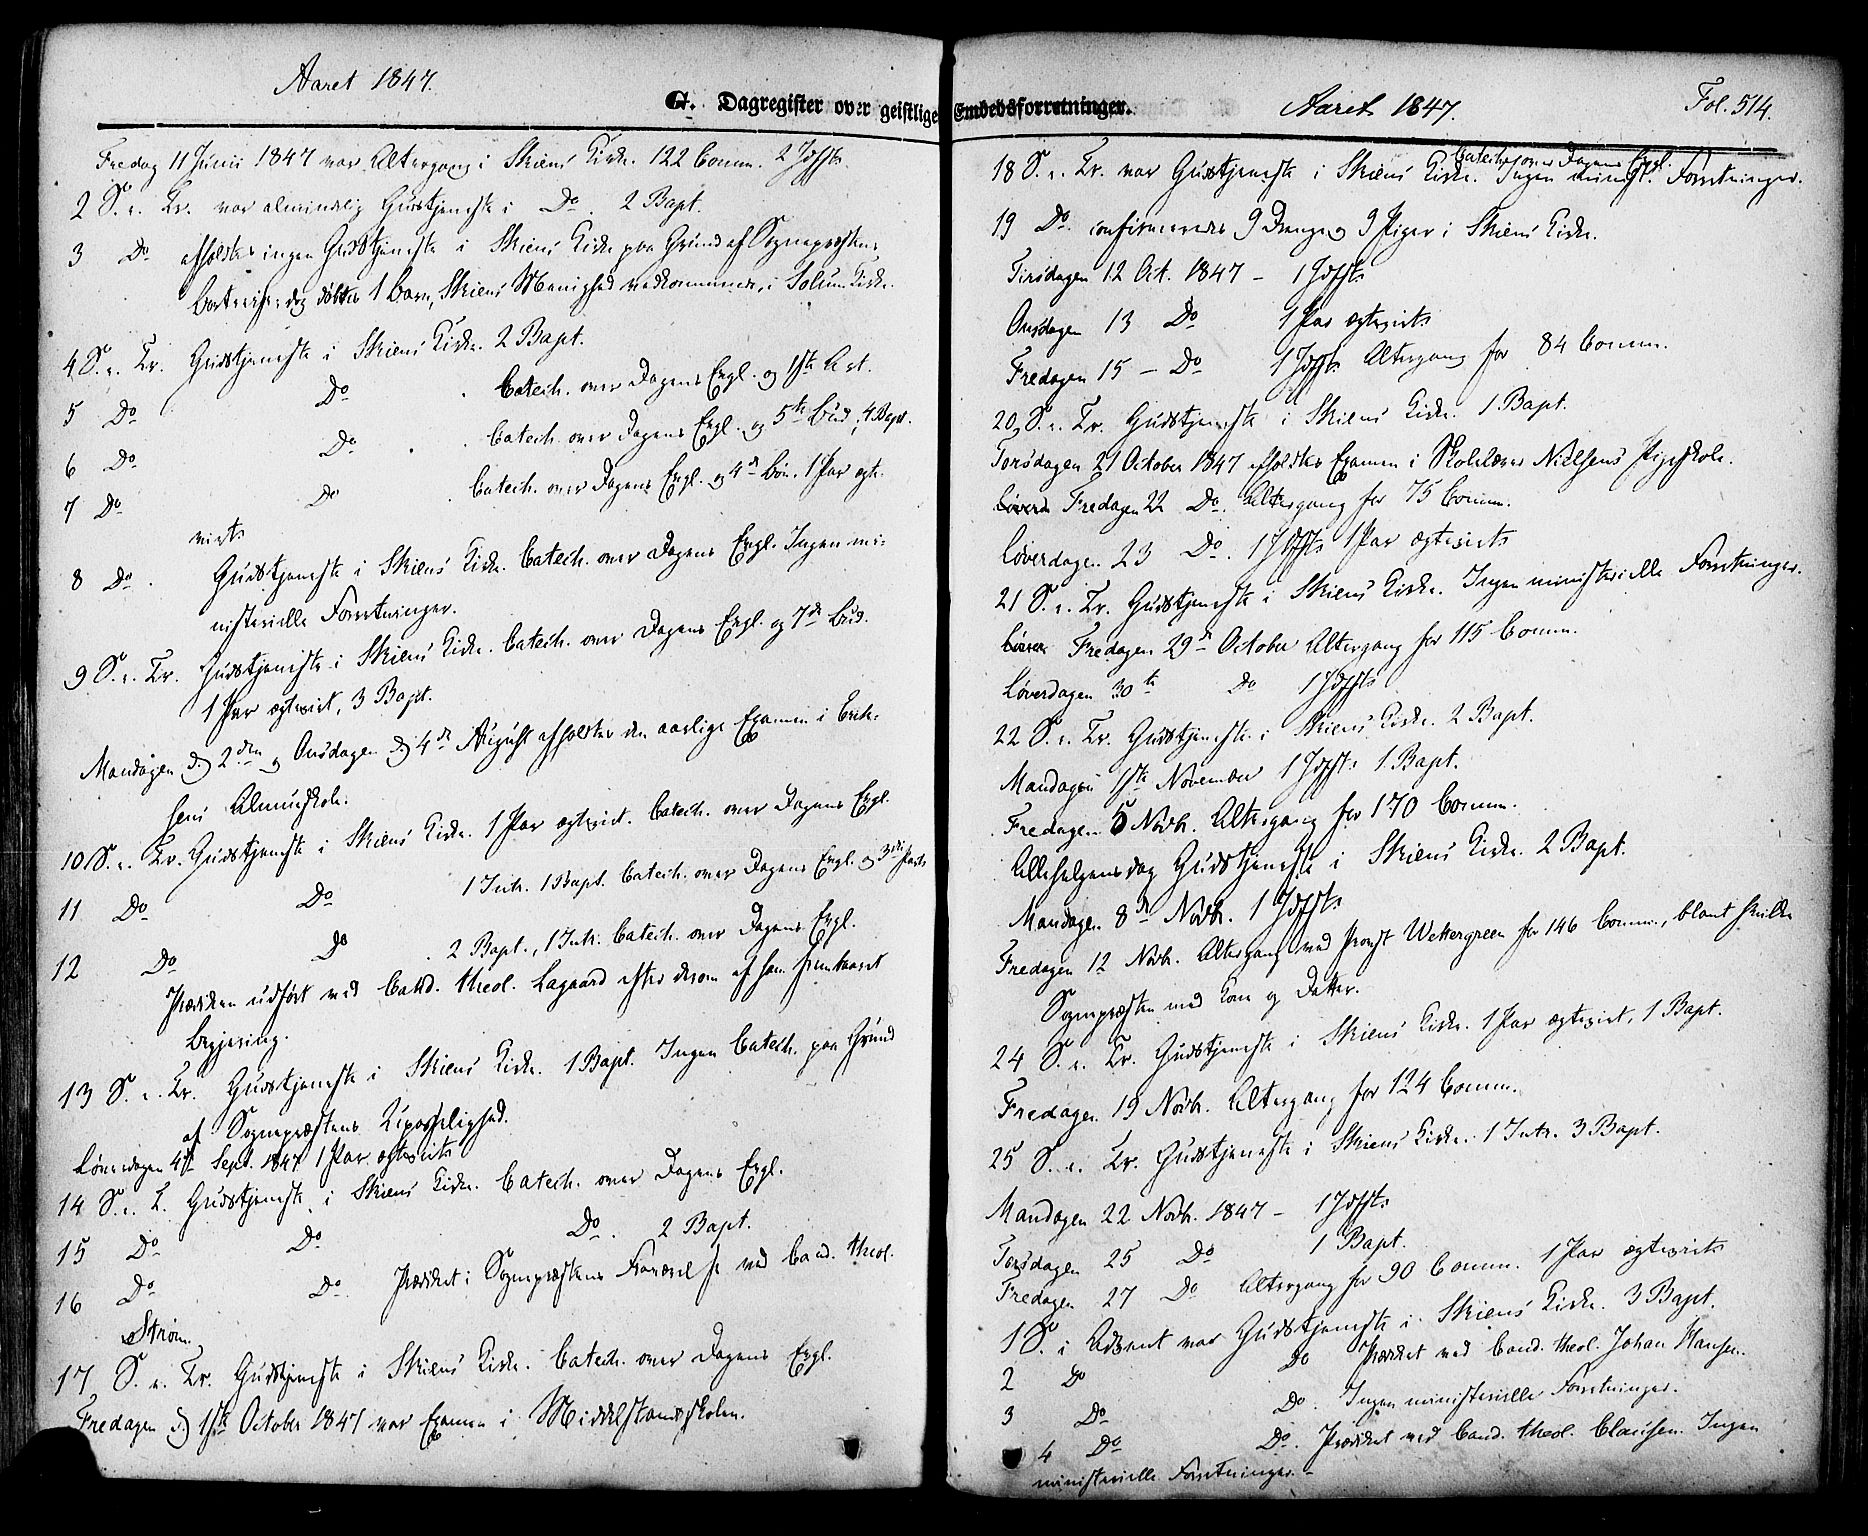 Aaret 1847.
G. Dagregister over geistlige Embedsforretninger.
Fredag 11 Junii 1847 var Altergang i Skiens Kirke. 122 Comm. 2 Jdfst.
2 S. e. Tr. var almindelig Gudstjeneste i Do. 2 Bapt.
3 Do afholdtes ingen Gudstjeneste i Skiens Kirke paa Grund af Sognepræstens
Bortreise; dog döbtes 1 Barn, Skiens Menighed vedkommende, i Solum Kirke.
4 S. e. Tr. Gudstjeneste i Skiens Kirke. 2 Bapt.
5 Do Do. Catech. over Dagens Evgl. og 1ste Art.
6 Do Do. Catech. over Dagens Evgl. og 5te Bud, 4 Bapt.
7 Do Do. Catech. over Dagens Evgl. og 4de Bön. 1 Par egte-
viet.
8 Do. Gudstjeneste i Skiens Kirke. Catech. over Dagens Evgl. Ingen mi-
nisterielle Forretninger.
9 S. e. Tr. Gudstjeneste i Skiens Kirke. Catech. over Dagens Evgl. og 7de Bud.
1 Par egteviet, 3 Bapt.
Mandagen d. 2den og Onsdagen d. 4de August afholdtes den aarlige Examen i Erik-
sens Almueskole.
10 S. e. Tr. Gudstjeneste i Skiens Kirke. 1 Par egteviet. Catech. over Dagens Evgl.
11 Do Do 1 Intr. 1 Bapt. Catech. over Dagens Evgl. og 3die Part
12 Do Do. 2 Bapt., 1 Intr. Catech. over Dagens Evgl.
Præken udfört ved Cand. theol. Lagaard efter derom af ham fremkaaret
Begjering.
13 S. e. Tr. Gudstjeneste i Skiens Kirke. 1 Bapt. Ingen Catech. paa Grund
af Sognepræstens Upasselighed.
Löverdagen 4de Sept. 1847 1 Par egteviet
14 S. e. T. Gudstjeneste i Skiens Kirke. Catech. over Dagens Evgl.
15 Do Do Do. 2 Bapt.
16 Do Do. Præket i Sognepræstens Fraværelse ved Cand. theol.
Ström.
17 S. e. Tr. Gudstjeneste i Skiens Kirke. Catech. over Dagens Evgl.
Fredagen d. 1ste October 1847 var Examen i Middelstandsskolen.
Aaret 1847.
Fol. 514.
Catech. over Dagens Evgl.
18 S. e. Tr. var Gudstjeneste i Skiens Kirke. Ingen minist. Forretninger.
19 Do. confirmeredes 9 Drenge og 9 Piger i Skiens Kirke.
Tirsdagen 12 Oct. 1847 – 1 Jdfst.
Onsdagen 13 Do 1 Par egteviet
Fredagen 15 – Do 1 Jdfst. Altergang for 84 Comm.
20 S. e. Tr. Gudstjeneste i Skiens Kirke. 1 Bapt.
Torsdagen 21 October 1847 afholdtes Examen i Skolelærer Nielsens Pigeskole.
Löverd Fredagen 22 Do. Altergang for 75 Comm.
Löverdagen 23 Do. 1 Jdfst. 1 Par egteviet
21 S. e. Tr. Gudstjeneste i Skiens Kirke. Ingen ministerielle Forretninger.
Löver Fredagen 29de October Altergang for 115 Comm.
Löverdagen 30te Do 1 Jdfst.
22 S. e. Tr. Gudstjeneste i Skiens Kirke. 2 Bapt.
Mandagen 1ste November 1 Jdfst. 1 Bapt.
Fredagen 5 Novbr. Altergang for 170 Comm.
Allehelgensdag Gudstjeneste i Skiens Kirke. 2 Bapt.
Mandagen 8de Novbr. 1 Jdfst.
Fredagen 12 Novbr. Altergang ved Provst Wettergreen for 146 Comm., blant hvilke
Sognepræsten med Kone og Datter.
24 S. e. Tr. Gudstjeneste i Skiens Kirke. 1 Par egteviet, 1 Bapt.
Fredagen 19 Novbr. Altergang for 124 Comm.
25 S. e. Tr. Gudstjeneste i Skiens Kirke. 1 Intr. 3 Bapt.
Mandagen 22 Novbr. 1847 – 1 Jdfst.
Torsdagen 25 Do 1 Bapt.
Fredagen 27 Do Altergang for 90 Comm. 1 Par egteviet
1 S. i Advent var Gudstjeneste i Skiens Kirke. 3 Bapt.
2 Do Do Præket ved Cand. theol. Johan Hansen.
3 Do Do. Ingen ministerielle Forretninger.
4 Do Do. Præket ved Cand. theol. Clausen. Ingen
ministerielle Forretninger. –